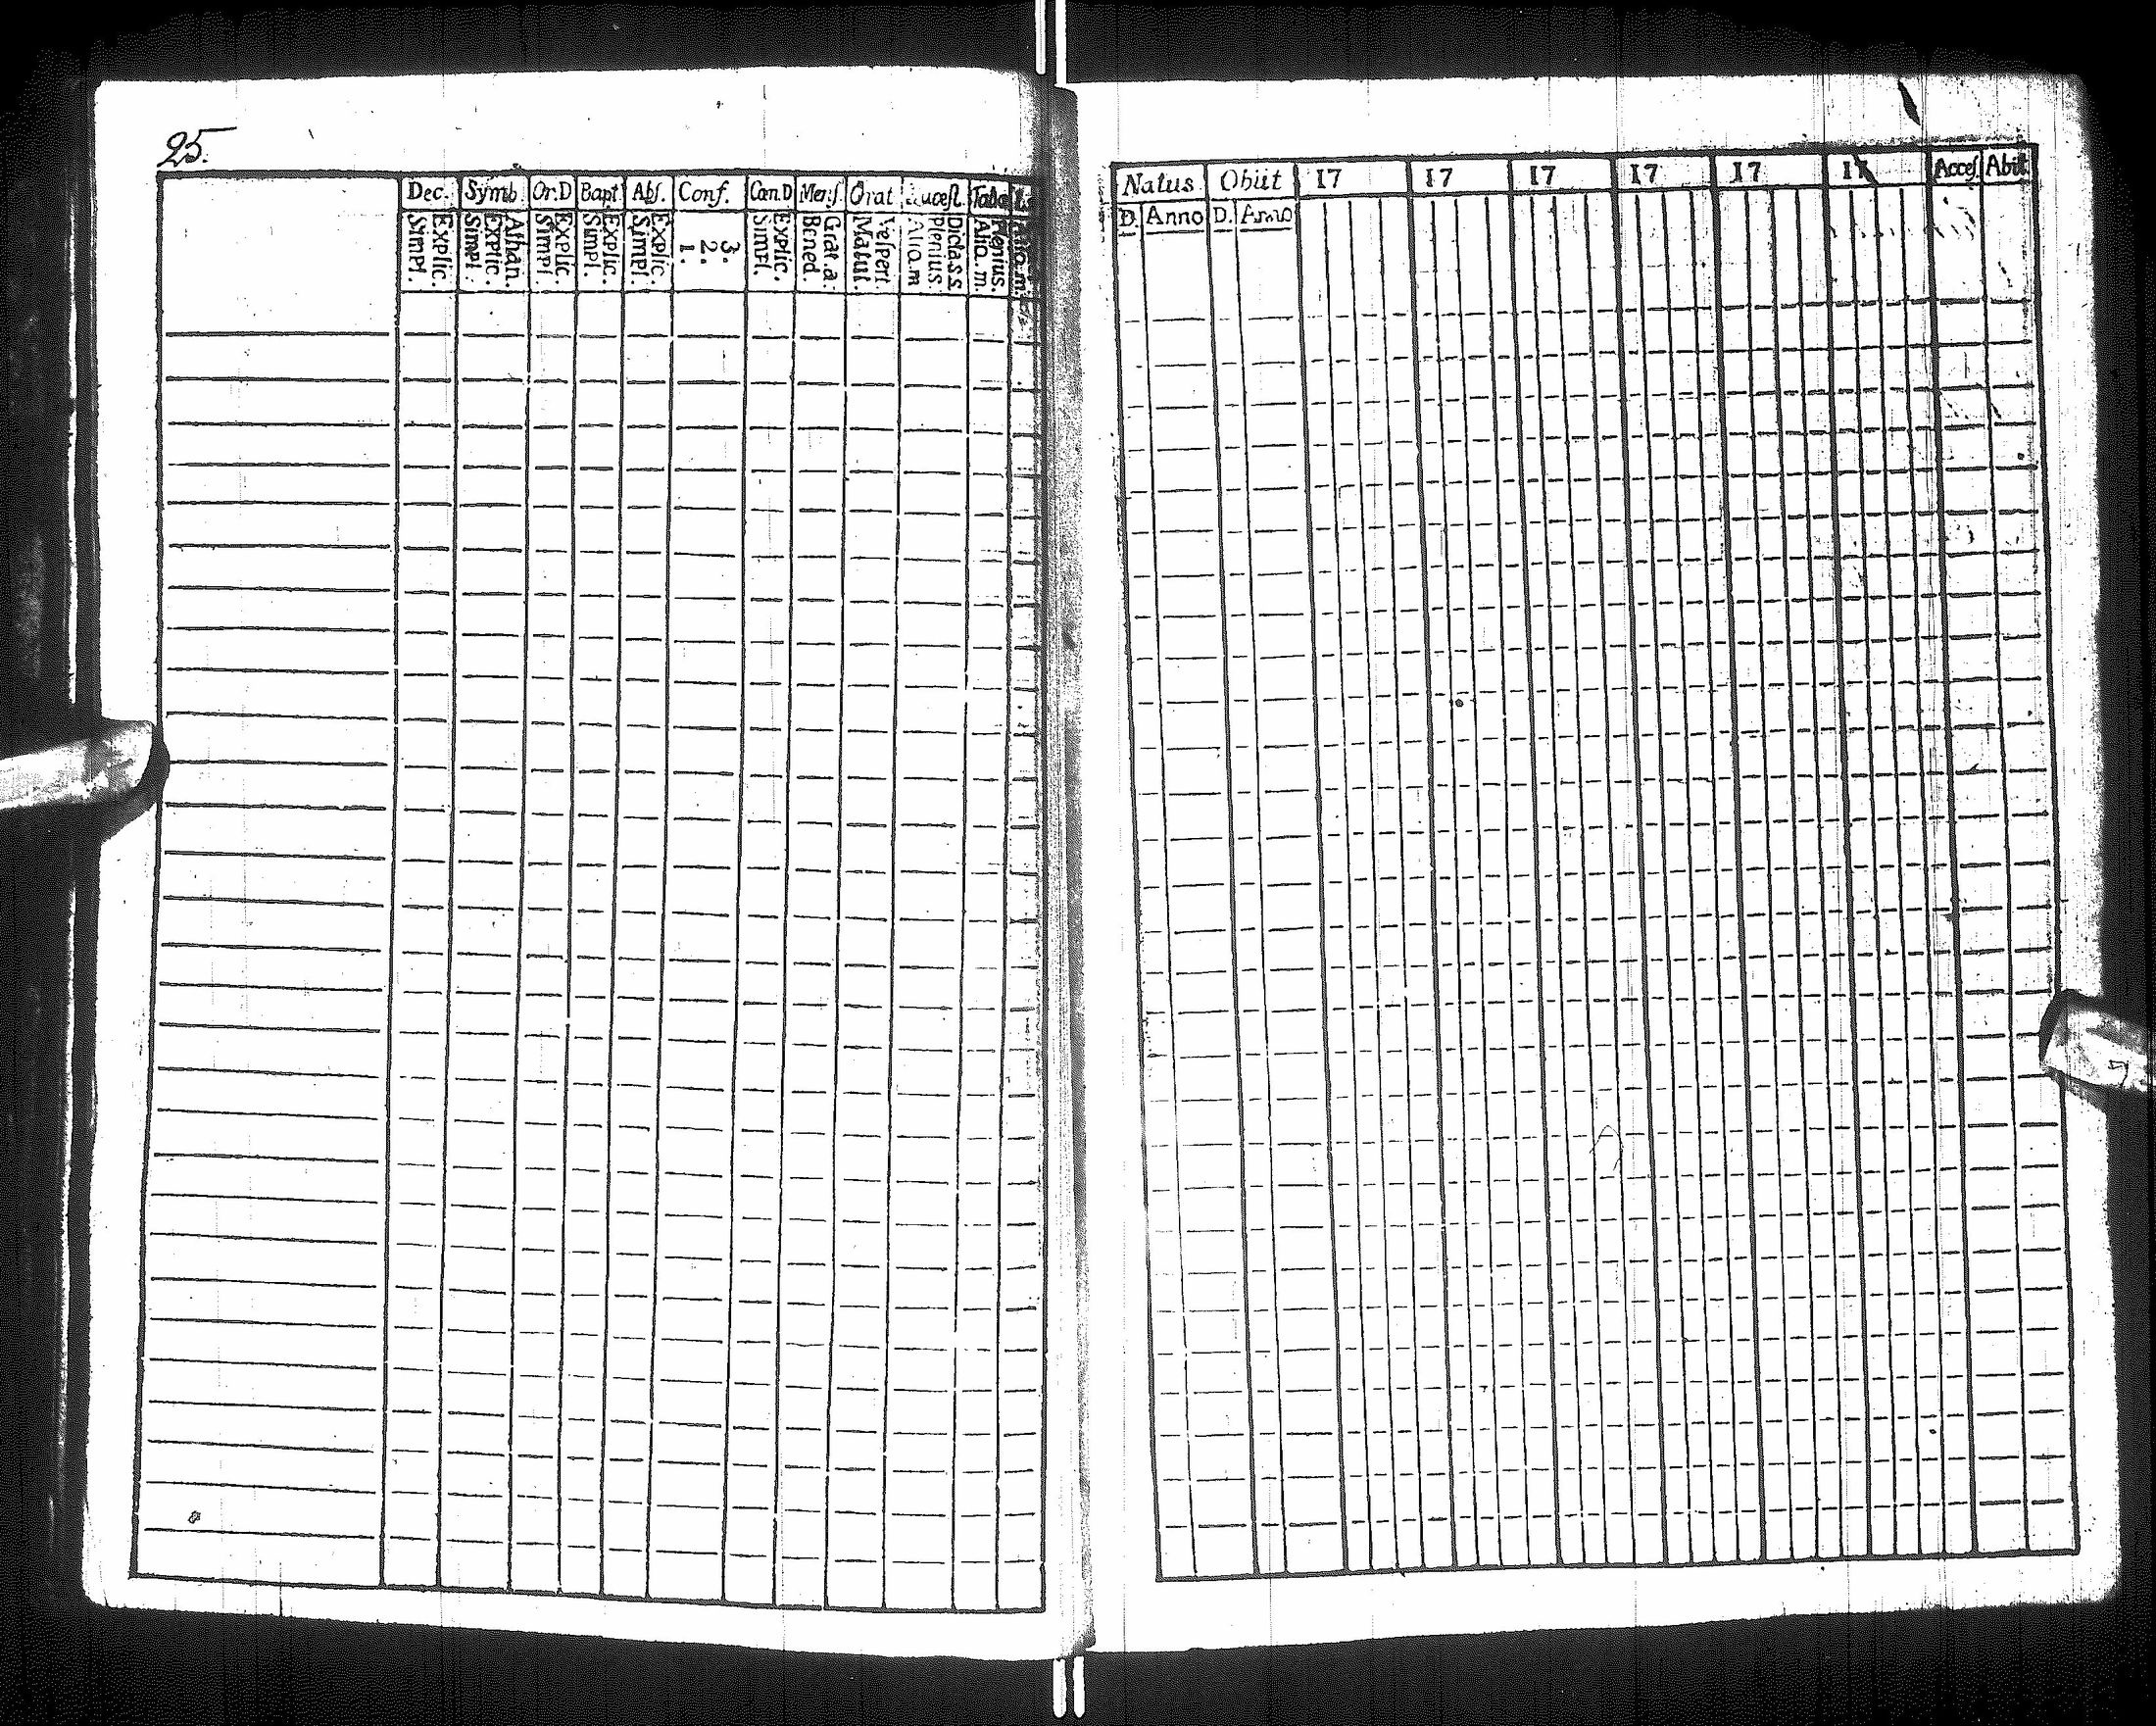 25.
Dec. Symb. Or.D Bapt. Abſ. Conf. Cœn.D Menſ. Orat Quæſt. Tabu
Explic. Simpl. Athan. Explic. Simpl. Explic. Simpl. Explic. Simpl. Explic. Simpl. 3. 2. 1. Explic. Simpl. Grat.a. Bened. Veſpert. Matut. Dicta s.s Plenius. Aliq.m Plenius. Aliq.m.
Natus Obiit 17 17 17 17 17 17 Acceſ. Abiit
D. Anno D. Anno